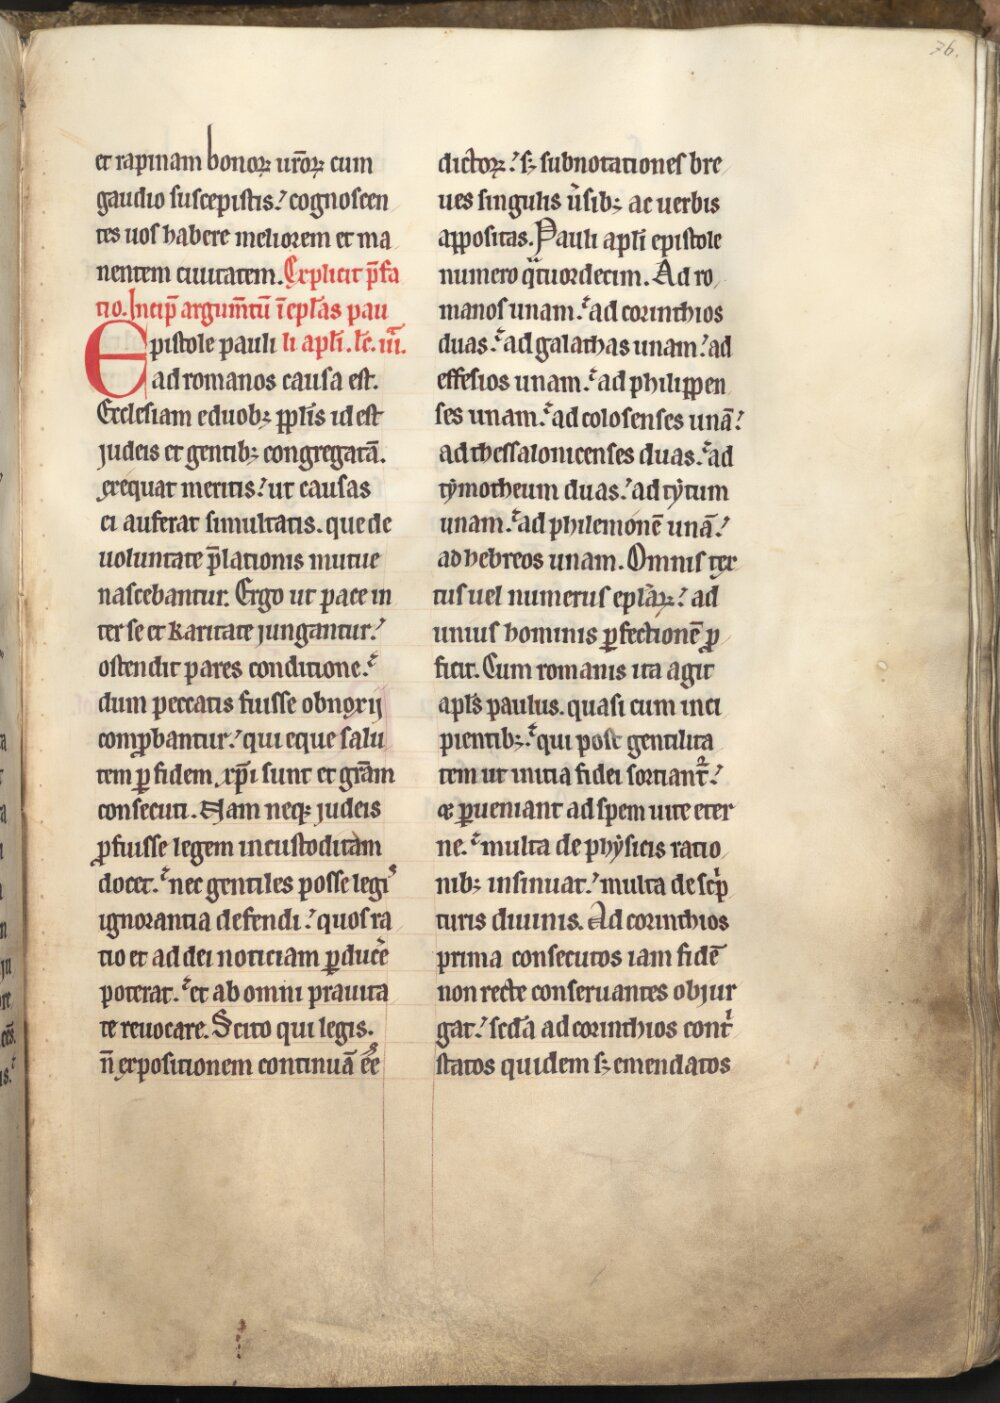 76.
et rapinam bonoꝝ ur̄oꝝ cum
gaudio suscepistis. cognoscen
tes uos habere meliorem et ma
nentem ciuitatem. Explicit p̄fa
tio. Incip̄ argum̄tū ī ep̄las pau
Epistole pauli li apl̄i. lc̄. iii.
ad romanos causa est.
Ecclesiam e duobꝫ pplis id est
judeis et gentibꝫ congregatā.
exequat meritis. ut causas
ei auferat simultatis. que de
uoluntate p̄lationis mutue
nascebantur. Ergo ut pace in
ter se et karitate jungantur.
ostendit pares conditione.
dum peccatis fuisse obnoxij
comꝓbantur. qui eque salu
tem ꝑ fidem xp̄i sunt et gr̄am
consecuti. Nam neqꝫ judeis
ꝓfuisse legem incustoditam
docet. nec gentiles posse legis
ignorantia defendi. quos ra
tio et ad dei noticiam ꝑducē
poterat. et ab omni prauita
te reuocare. Scito qui legis.
n̄ expositionem continuā ēē
dictoꝝ. sꝫ subnotationes bre
ues singulis ūsibꝫ ac uerbis
appositas. Pauli apl̄i epistole
numero qͣtuordecim. Ad ro
manos unam. ad corinthios
duas. ad galathas unam. ad
effesios unam. ad philippen
ses unam. ad colosenses unā.
ad thessalonicenses duas. ad
tẏmotheum duas. ad tẏtum
unam. ad philemonē unā.
ad hebreos unam. Omnis tex
tus uel numerus ep̄laꝝ. ad
unius hominis ꝑfectionē ꝓ
ficit. Cum romanis ita agit
apl̄s paulus. quasi cum inci
pientibꝫ. qui post gentilita
tem ut initia fidei sortiant᷑.
& ꝑueniant ad spem uite eter
ne. multa de phẏsicis ratio
nibꝫ insinuat. multa de scͥp
turis diuinis. Ad corinthios
prima consecutos iam fidē
non recte conseruantes objur
gat. scd̄a ad corinthios contͥ
statos quidem sꝫ emendatos